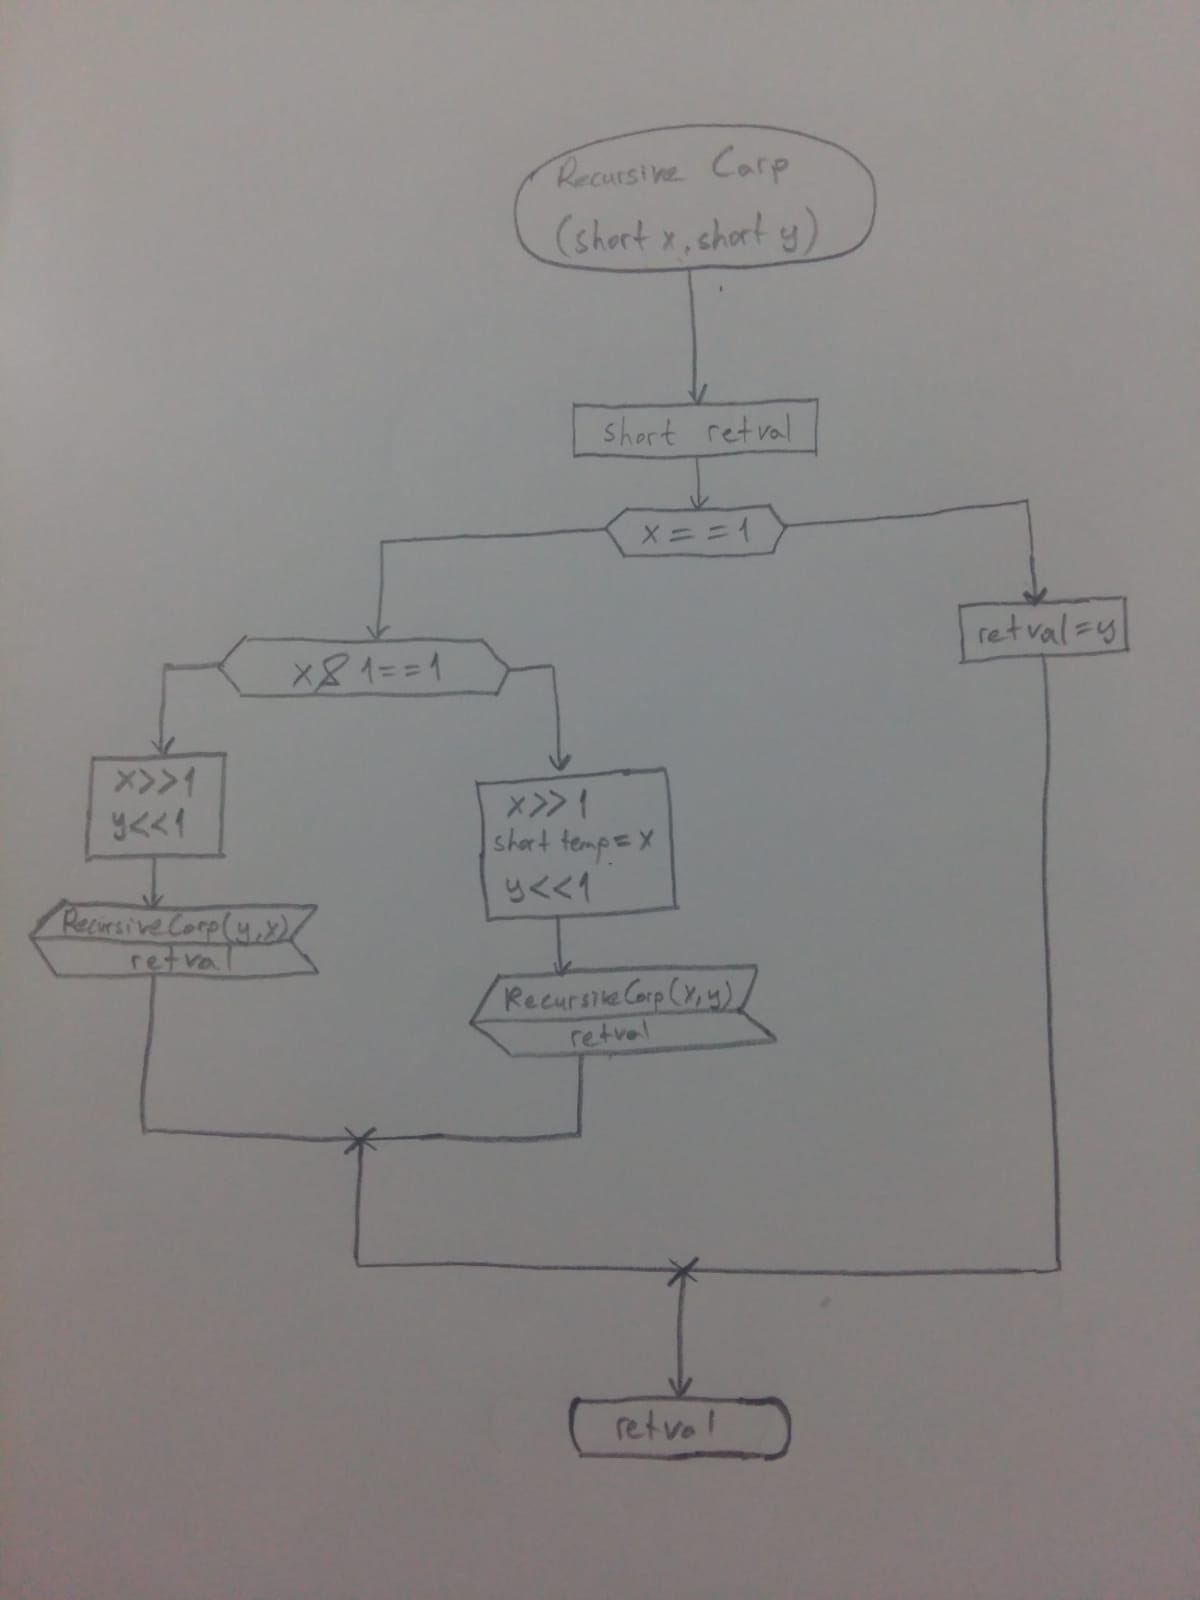 Recursive Carp
(short x, short y)
short retval
x==1
retval=y
x&1==1
x>>1
y<<1
RecursiveCarp(y,x)
retval
x>>1
short temp=x
y<<1
RecursiveCarp(x,y)
retval
retval